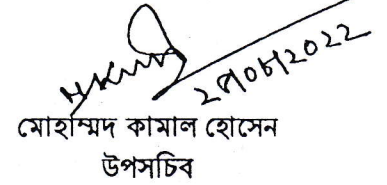 ২৮/০৮/2022
মোহাম্মদ কামাল হোসেন
উপসচিব